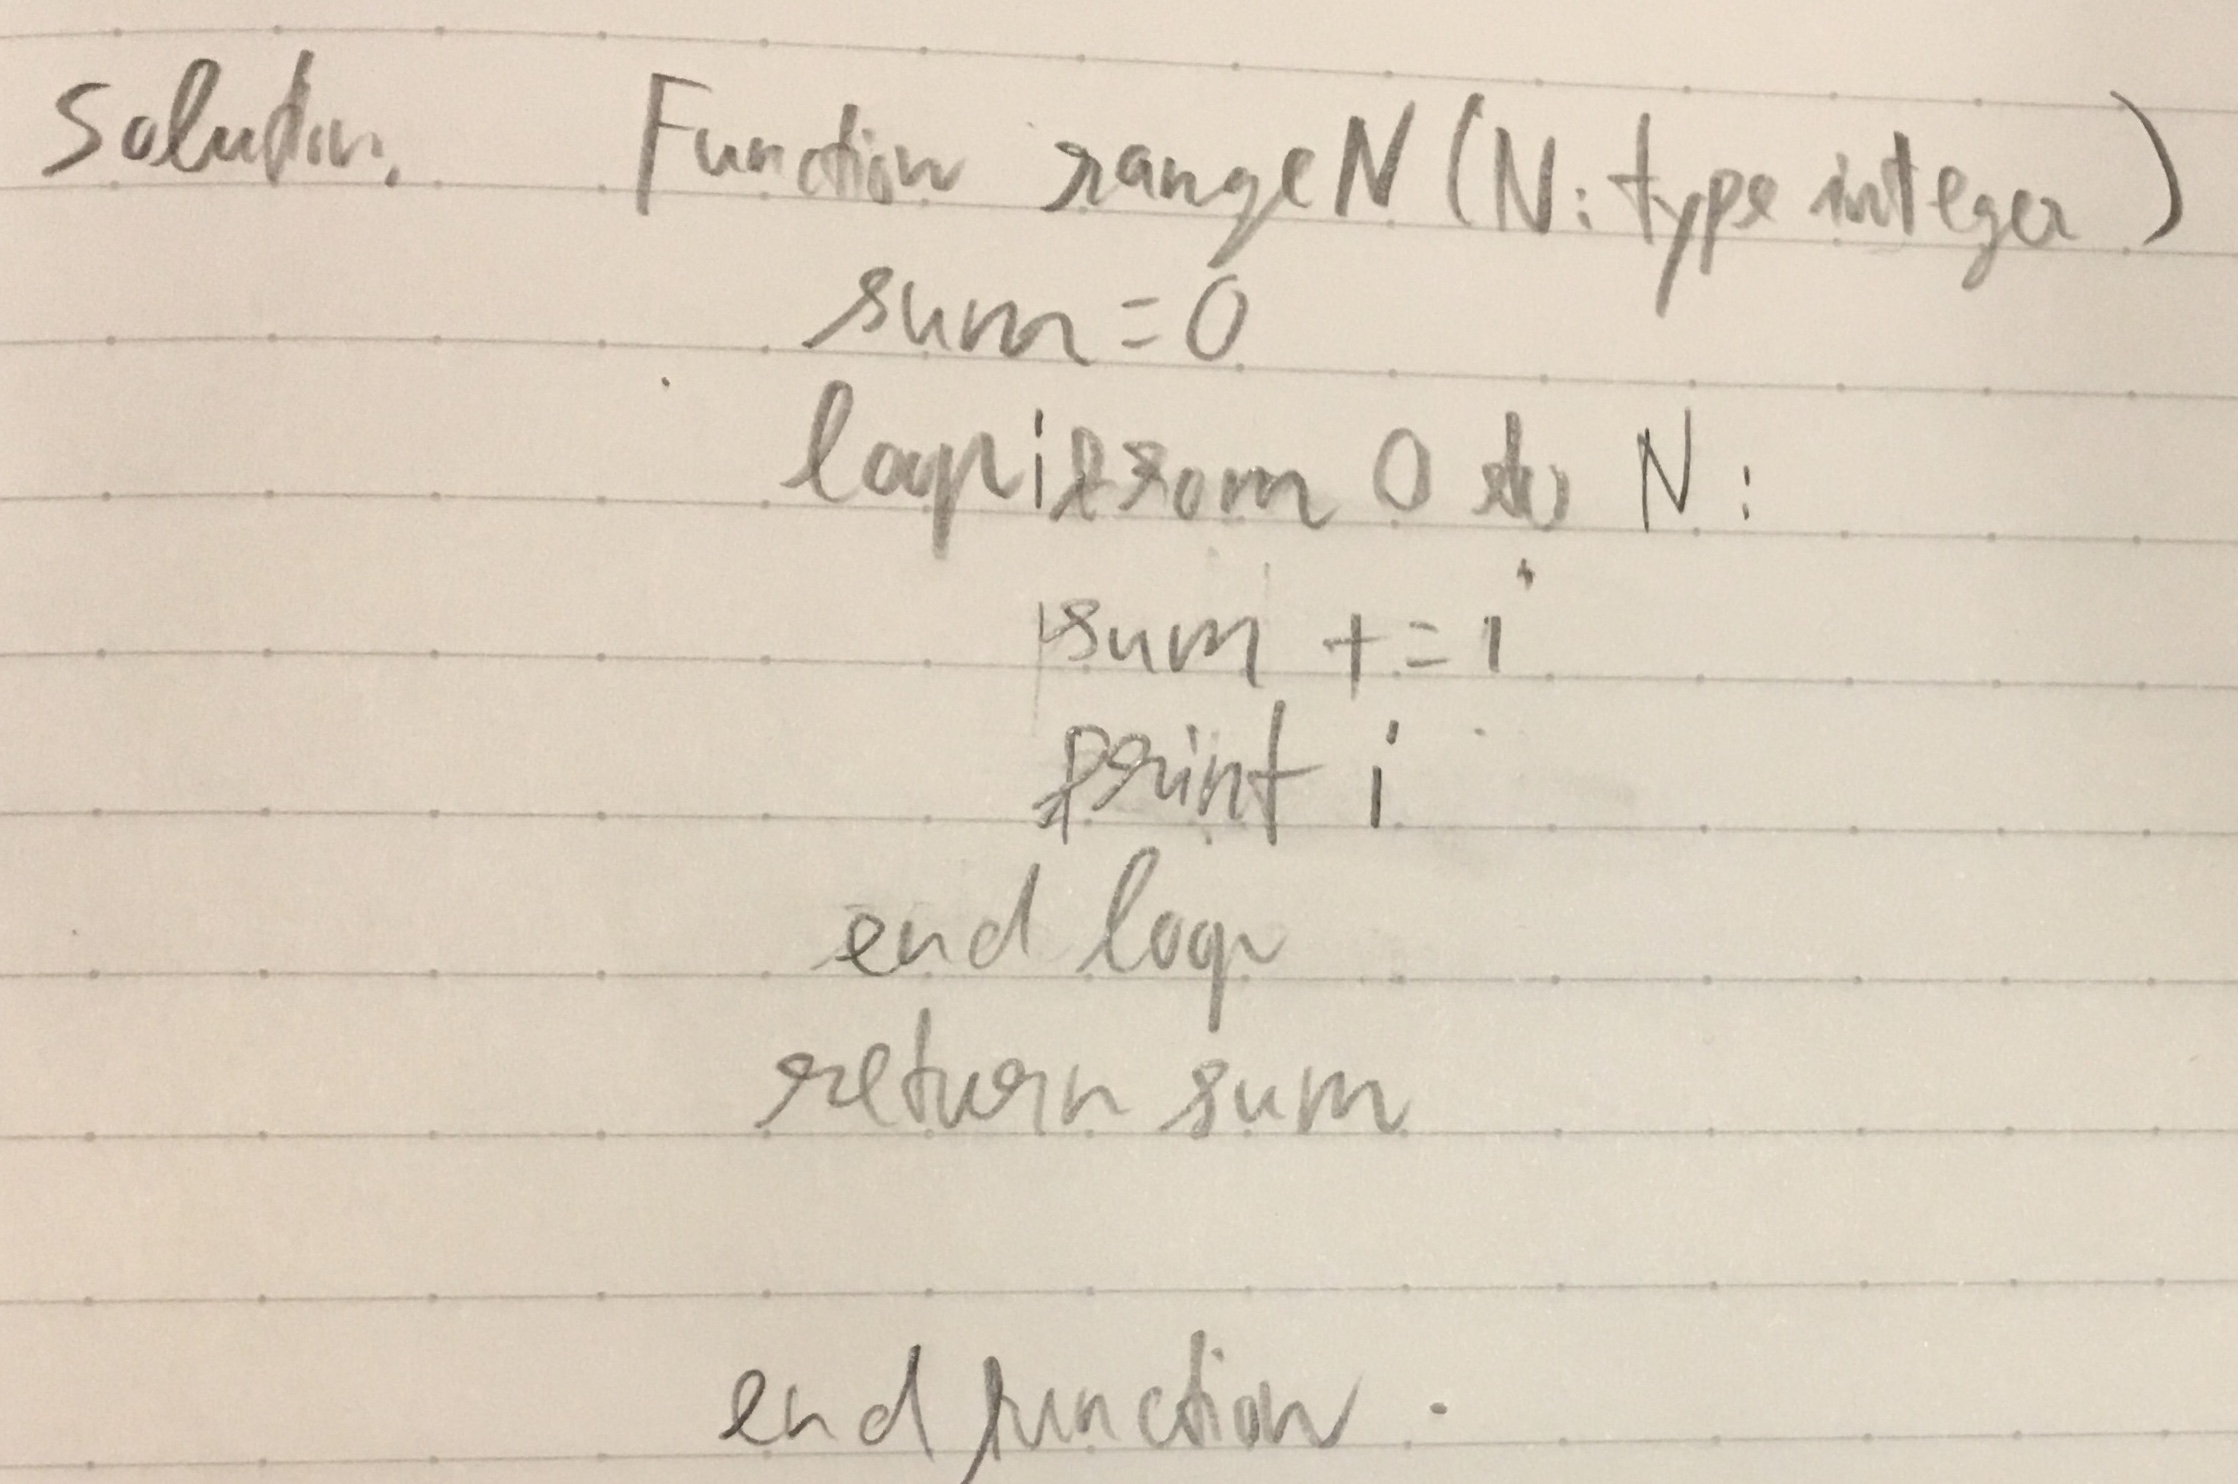 Solution. Function rangeN (N: type integer)
sum = 0
loop i from 0 to N :
sum += i
print i
end loop
return sum
end function .